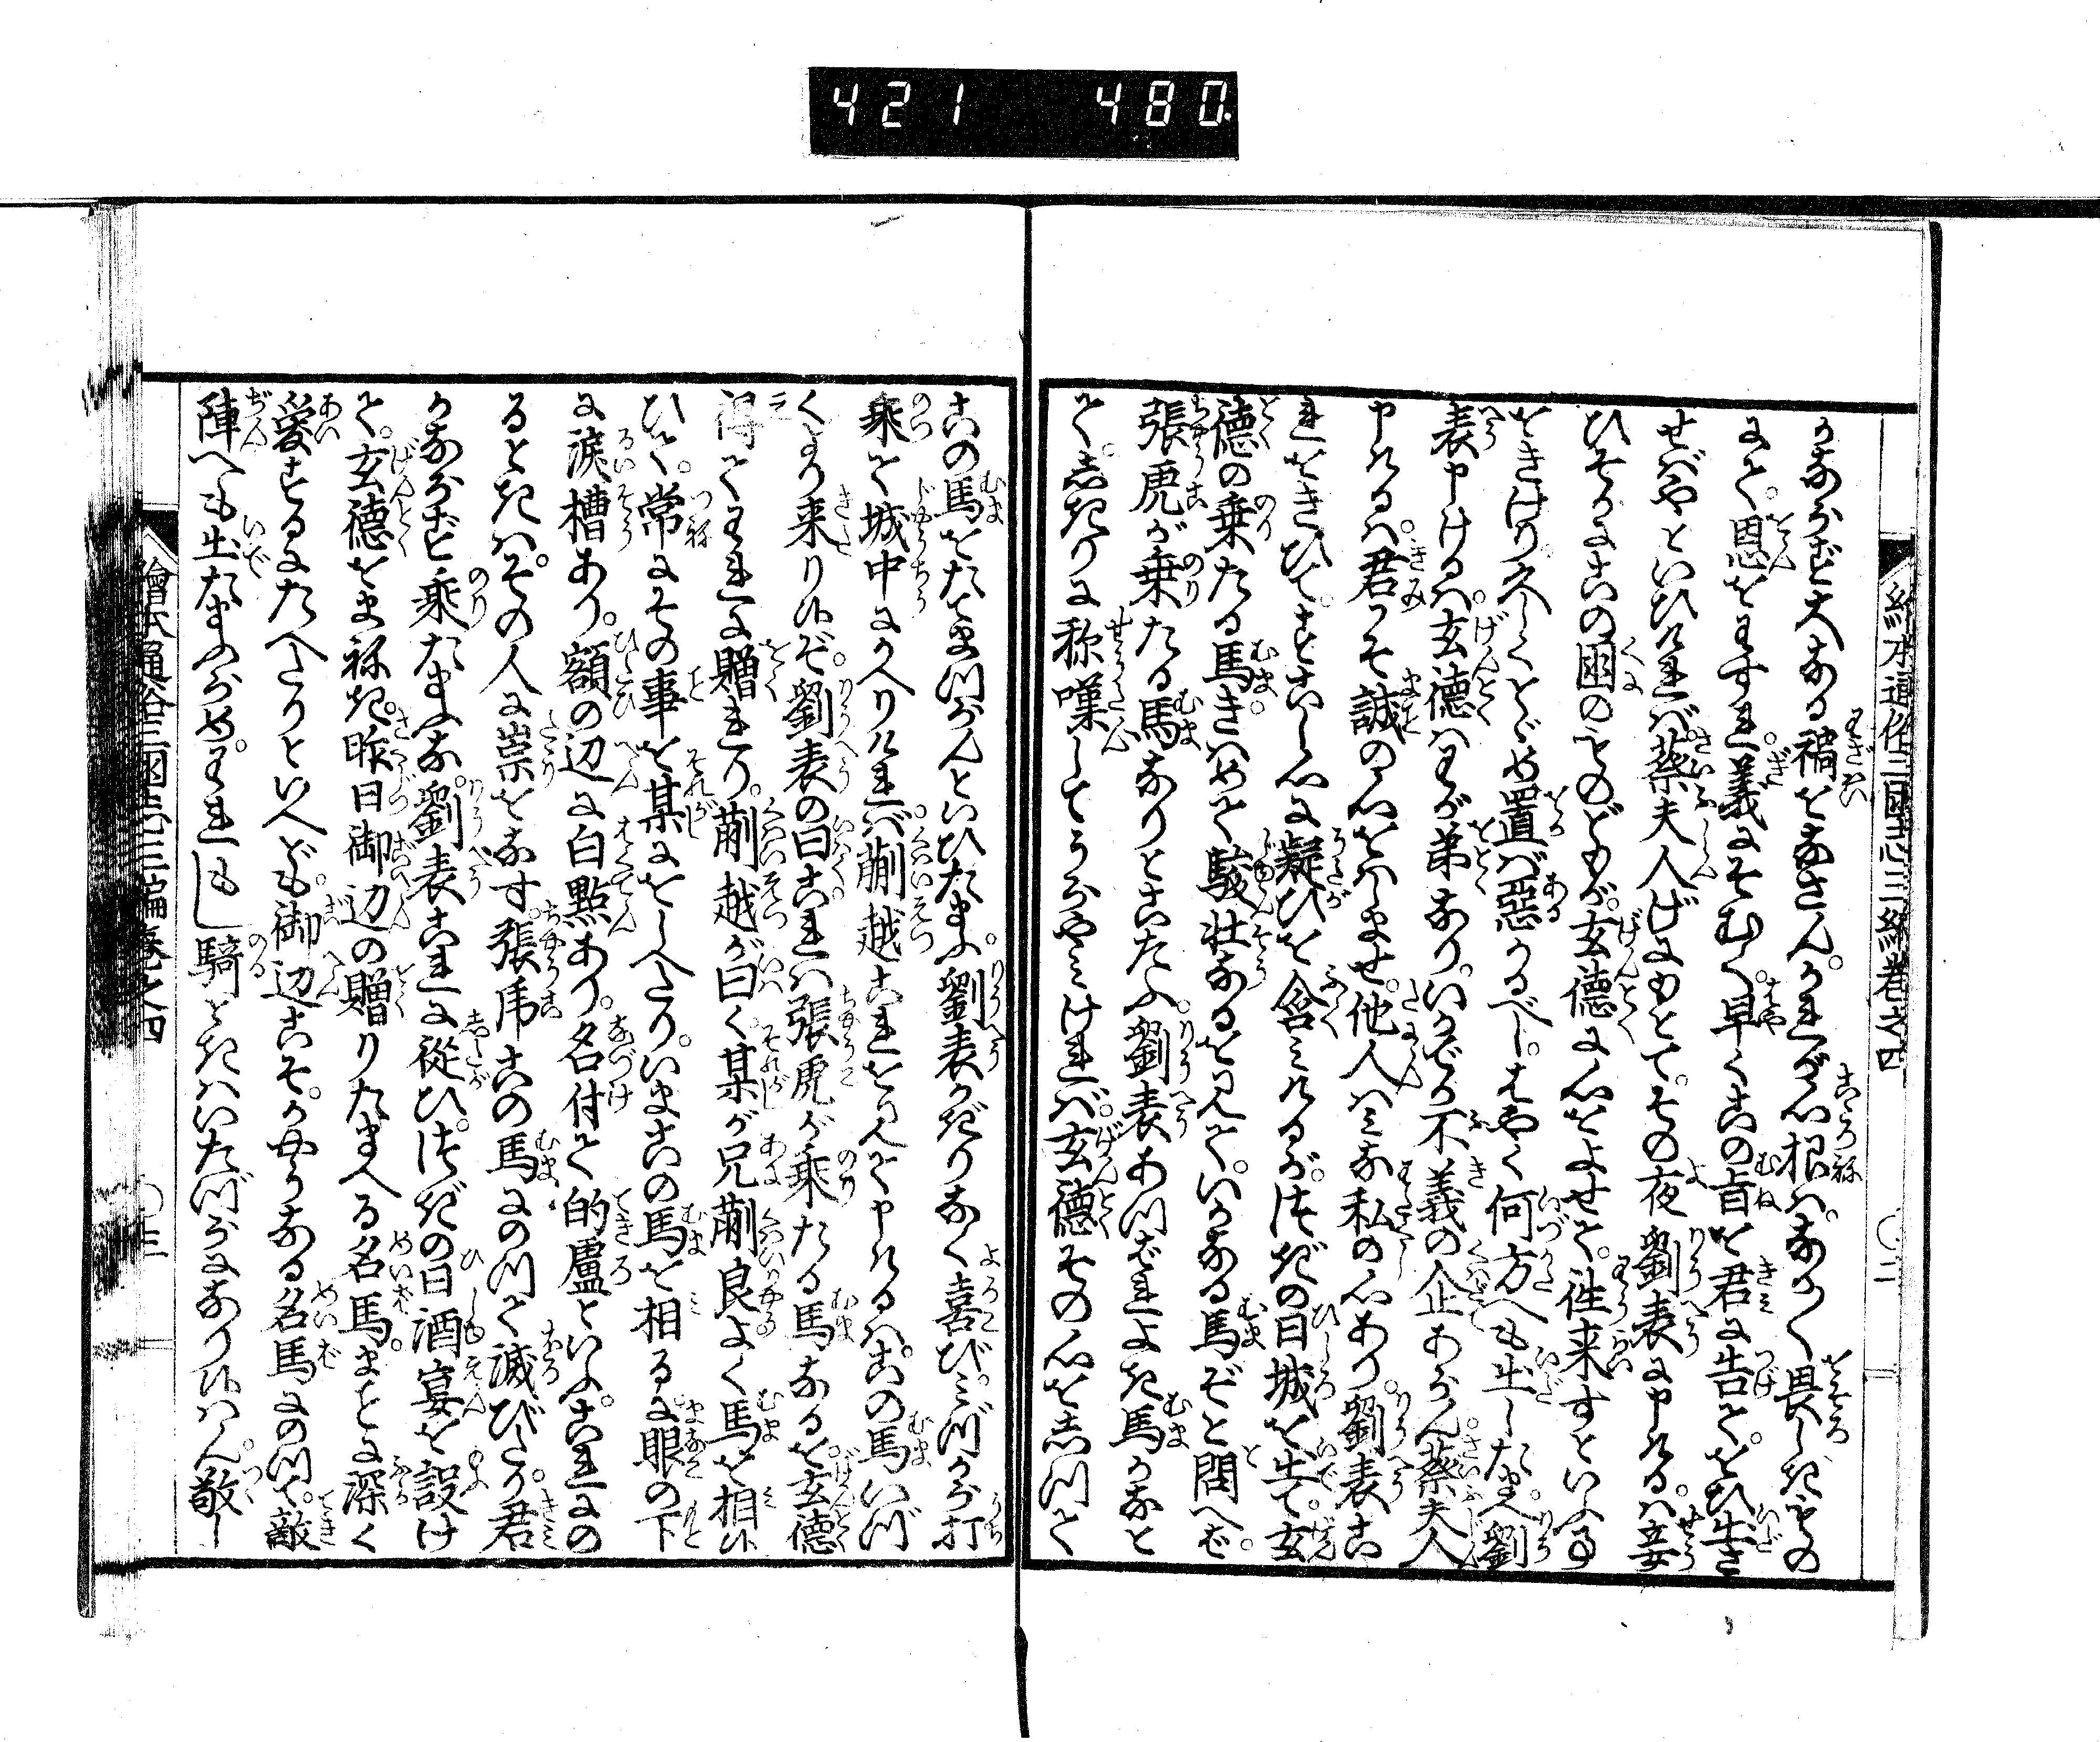 421 480
絵本通俗三国志三編巻之四 〇二
かならず大なる禍をなさん。かれが心根は。なかく畏しきもの
にて。恩をわすれ。義にそむく。早くこの旨を君に告て。をひ出さ
せばやといひければ蔡夫人げにもとて。その夜劉表に申けるは。妾
ひそかにこの国のものどもが。玄徳に心をよせて。往来すといふ事
をきけり。久しくとゞめ置ば惡かるべし。はやく何方へも出したまへ劉
表申けるは。玄徳はわが弟なり。いかでか不義の企あらん。蔡夫人
申けるは。君こそ誠の心をましませ。他人はみな私の心あり。劉表こ
れをきひて。すこし心に疑ひを含みけるが。次の日城を出て。玄
徳の乗たる馬きはめて駿壮なるを見て。いかなる馬ぞと問へば。
張虎が乗たる馬なりとこたふ。劉表あつぱれよき馬かなと
て。しきりに称嘆してうらやみければ。玄徳その心をしつて
この馬をたてまつらんといひたまふ。劉表かぎりなく喜び。みづから打
乗て城中にかへりければ。蒯越これを見て申けるは。この馬いづ
くより来り候ぞ。劉表の曰これは張虎が乗たる馬なるを。玄徳
得てわれに贈れり。蒯越が曰く某が兄蒯良よく馬を相候
ひて。常にその事を某にをしへたり。いまこの馬を相るに。眼の下
に涙槽あり。額の辺に白點あり。名付て的盧といふ。これにの
るときは。その人に祟をなす。張虎この馬にのつて滅びたり。君
かならず乗たまふな。劉表これに從ひ。次の日酒宴を設け
て。玄徳をまねき。昨日御辺の贈りたまへる名馬。まことに深く
愛するにたへたりといへども。御辺こそ。かやうなる名馬にのつて。敵
陣へも出たまふらめ。われもし騎ときはいたづらになり候はん。敬し
繪本通俗三国志三編巻之四 〇三